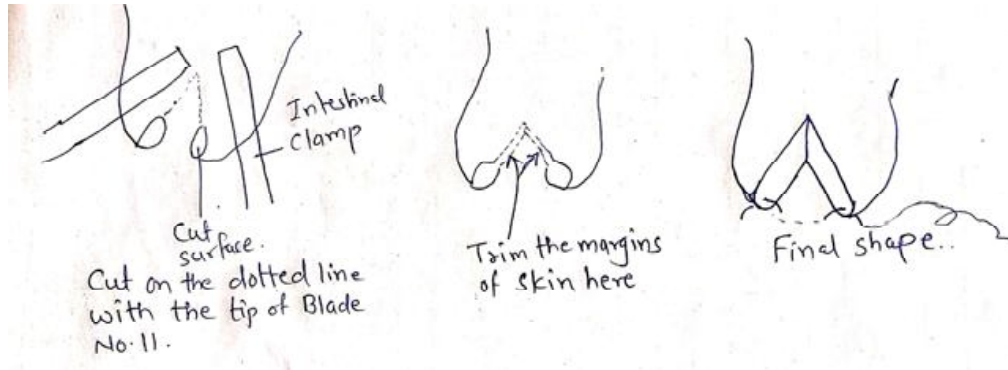 Intestinal
Clamp
Cut
surface.
Cut on the dotted line
with the tip of Blade
No. 11.
Trim the margins
of skin here
Final shape..